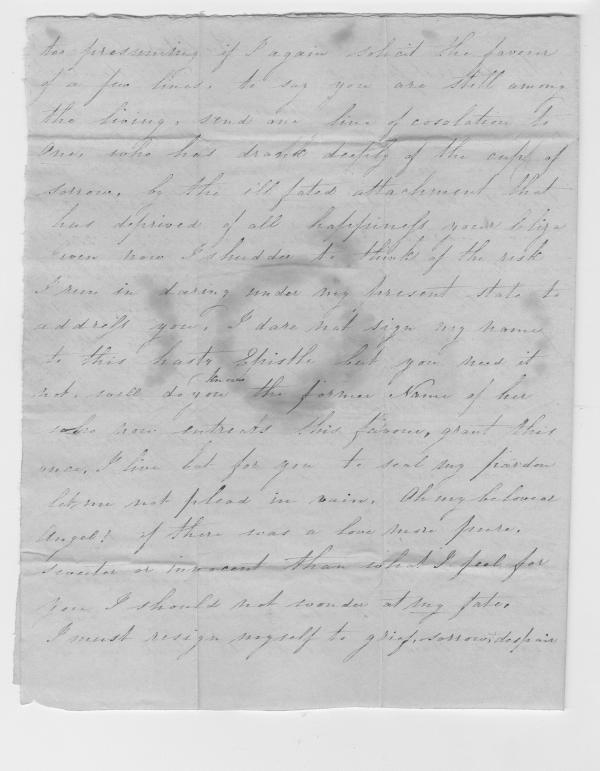 too presuming if I again solicit the favour
of a few lines. to say you are still among
the living, send one line of cosolation to
one, who has drank deeply of the cup of
sorrow, by the ill fated attachment that
has deprived of all happiness your
even now I shudder to think of the risk
I run in daring under my present state to
address you, I dare not sign my name
to this hasty Epistle but you need it
not, well do you know the former Name of her
who now entreats this favour, grant this
once, I live but for you to seal my pardon
let me not plead in vain. Oh my beloved
Angel! if there was a love more pure,
sweeter or innocent than what I feel for
you I should not wonder at my fate,
I must resign myself to grief, sorrow, despair